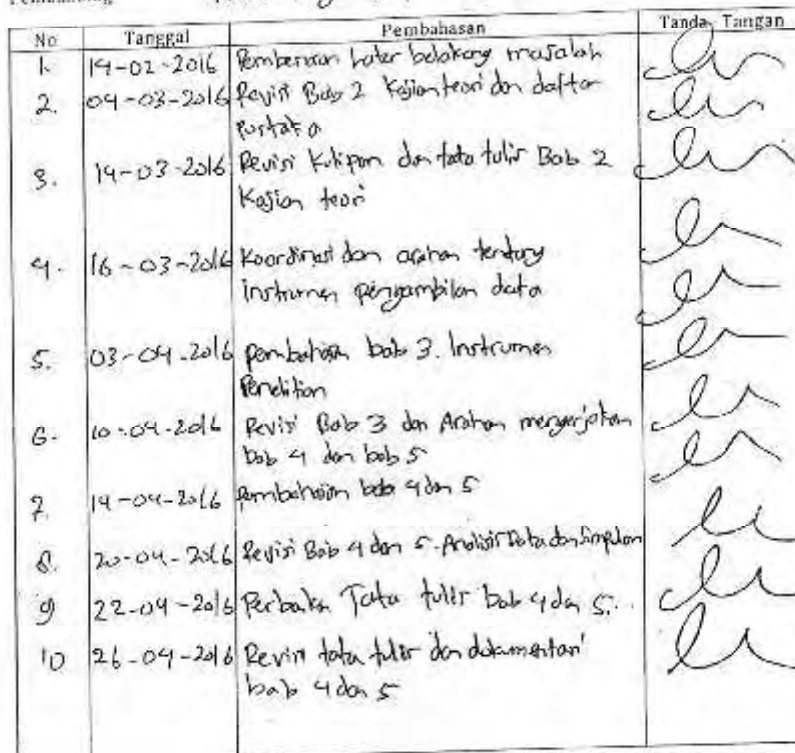 No Tanggal Pembahasan Tanda Tangan
1. 14-02-2016 Pemberian Latar belakang masalah
2. 04-03-2016 Revisi Bab 2 Kajian teori dan daftar
pustaka
3. 14-03-2016 Revisi Kutipan dan tata tulis Bab 2
Kajian teori
4. 16-03-2016 Koordinasi dan arahan tentang
instrumen pengambilan data
5. 03-04-2016 pembahasan bab 3. Instrumen
Penelitian
6. 10-04-2016 Revisi Bab 3 dan Arahan mengerjakan
bab 4 dan bab 5
7. 14-04-2016 pembahasan bab 4 dan 5
8. 20-04-2016 Revisi Bab 4 dan 5. Analisis Data dan Simpulan
9 22-04-2016 Tata tulis bab 4 dan 5.
10 26-04-2016 Revisi tata tulis dan dokumentasi
bab 4 dan 5